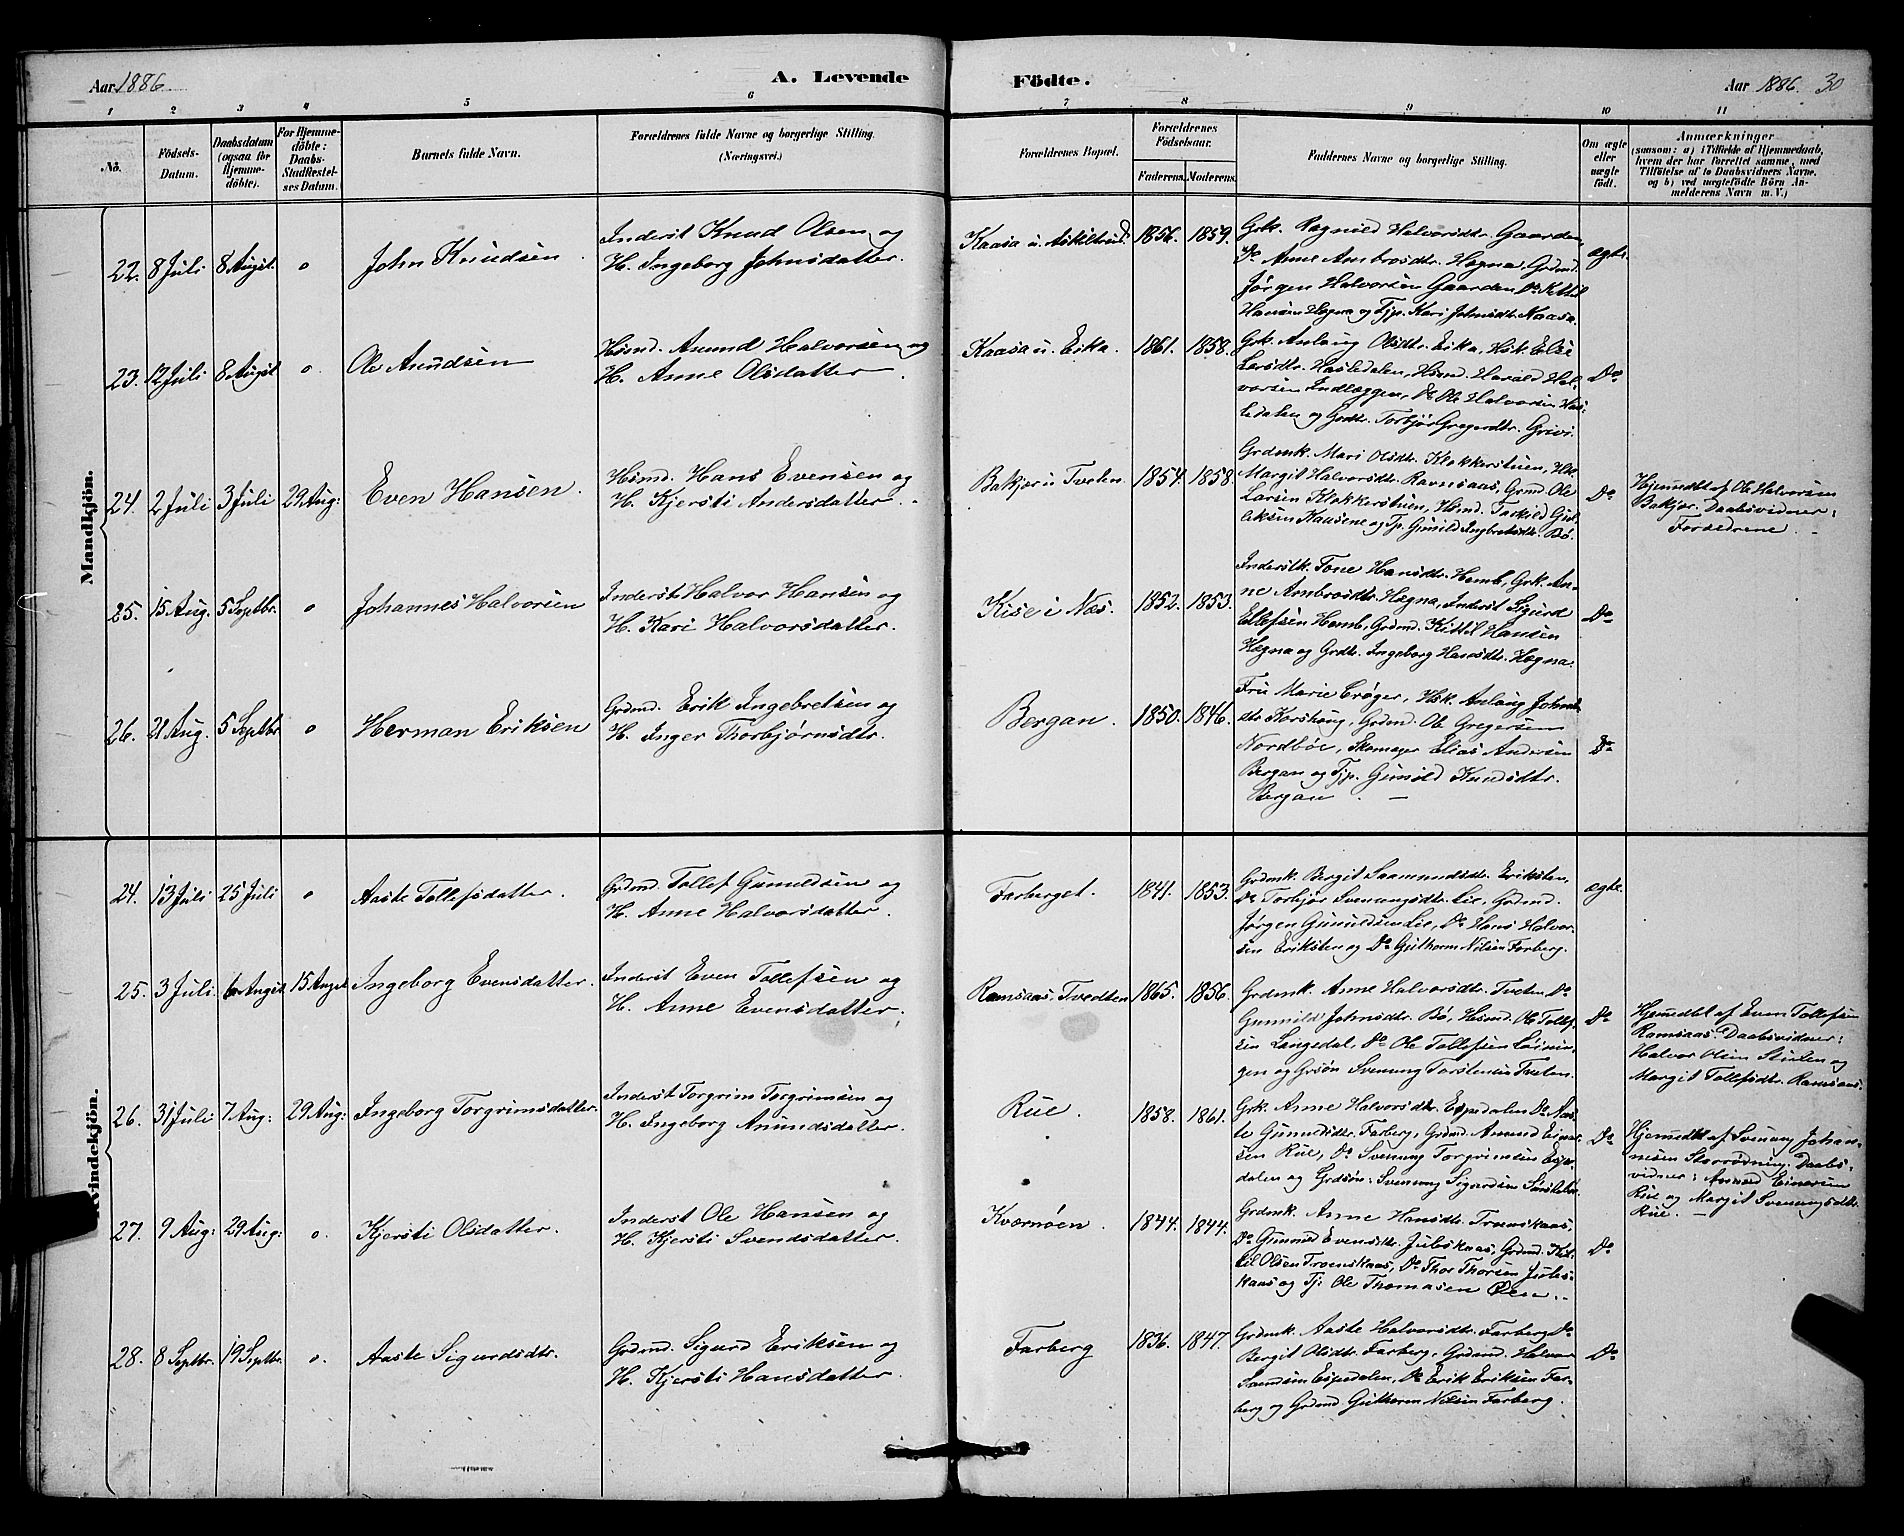 Aar 1886
A. Levende
Födte.
Aar 1886. 30
1 2 3 4 5 6 7 8 9 10 11
No.
Födsels-
Datum.
Daabsdatum
(ogsaa for
Hjemme-
döbte).
For Hjemme-
döbte:
Daabs-
Stadfæstel-
ses Datum.
Barnets fulde Navn.
Forældrenes fulde Navne og borgerlige Stilling.
(Næringsvei.)
Forældrenes Bopæl.
Forældrenes
Födselsaar.
Faderens. Moderens.
Faddernes Navne og borgerlige Stilling.
Om ægte
eller
uægte
födt.
Anmærkninger
(saasom: a) i Tilfælde af Hjemmedaab,
hvem der har forrettet samme, med
Tilföielse af to Daabsvidners Navne,
og b) ved uægtefödte Börn An-
melderens Navn m. V.)
Mandkjön.
22. 8 Juli 8 Augst. o John Knudsen
Inderst Knud Olsen og
H. Ingeborg Johnsdatter.
Kaasa u. Askiltrud. 1856. 1859.
Grk. Ragnild Halvorsdtr. Gaarden,
Do Anne Ambrosdtr. Hegna, Grdmd.
Jørgen Halvorsen Gaarden, Do Kittil
Hansen Hegna og Tjp. Kari Johnsdtr. Kaasa.
ægte.
23. 12 Juli 8 Augst. o Ole Anundsen
Hsmd. Anund Halvorsen og
H. Anne Olsdatter.
Kaasa u. Eika. 1861. 1858.
Grk. Anlaug Olsdtr. Eika, Hsk. Else
Larsdtr. Hasledalen, Hsmd. Harald Hal-
vorsen Indlæggen, Do Ole Halvorsen Has-
ledalen og Grdtr. Torbjør Gregersdtr. Grivi.
Do
24. 2 Juli 3 Juli 29 Aug: Even Hansen.
Hsmd. Hans Evensen og
H. Kjersti Andersdatter.
Bakjor u. Tveten. 1854. 1858.
Grdmk. Mari Olsdtr. Klokkerstuen, Hsk.
Margit Halvorsdtr. Ravnsaas, Grmd Ole
Larsen Klokkerstuen, Hsmd. Torkild Gul-
leksen Kaasene og Tjp. Gunild Ingbretsdtr. Bø.
Do
Hjemmedbt af Ole Halvorsen
Bakjor. Daabsvidner:
Forældrene.
25. 15 Aug. 5 Septbr. o Johannes Halvorsen
Inderst Halvor Hansen og
H. Kari Halvorsdatter.
Kise i Næs. 1852. 1853.
Inderstk. Tone Hansdtr. Homb, Grk. An-
ne Ambrosdtr. Hegna, Inderst Sigurd
Ellefsen Homb, Grdmd. Kittil Hansen
Hegna og Grdtr. Ingeborg Hansdtr. Hegna.
Do
26. 21 Aug. 5 Septbr o Herman Eriksen
Grdmd. Erik Ingebretsen og
H. Inger Thorbjørnsdtr.
Bergan. 1850. 1846.
Fru Marie Crøger, Hsk. Anlaug Johns-
dtr Korshaug, Grdmd. Ole Gregersen
Nordbøe, Skomager Elias Andersen
Bergan og Tjp. Gunild Knudsdtr.
Bergan.
Do
Kvindekjön.
24. 13 Juli 25 Juli o Aaste Tollefsdatter.
Grdmd. Tollef Gunuldsen og
H. Anne Halvorsdatter.
Farberget. 1841. 1853.
Grdmk. Bergit Saamundsdtr. Eriksten,
Do Torbjør Svenungsdtr. Lie, Grdmd.
Jørgen Gunuldsen Lie, Do Hans Halvor-
sen Eriksten og Do Guthorm Nilsen Farberg.
ægte.
25. 3 Juli. 6 Augst. 15 Augst. Ingeborg Evensdatter.
Inderst Even Tollefsen og
H. Anne Evensdatter.
Ramsaas, Tvedten 1865. 1856.
Grdmk. Anne Halvorsdtr. Tveten Do
Gunnild Johnsdtr. Bö, Hsmd. Ole Tollef-
sen Langedal, Do Ole Tollefsen
gen og Grsøn Svenung Torstensen Tveten.
Do
Hjemmedbt af Even Tollefsen
Ramsaas. Daabsvidner:
Halvor Olsen Stulen og
Margit Tollefsdtr. Ramsaas.
26. 31 Juli 7 Aug: 29 Aug: Ingeborg Torgrimsdatter.
Inderst Torgrim Torgrimsen og
H. Ingeborg Anundsdatter.
Rue. 1858. 1861.
Grk. Anne Halvorsdtr. Espedalen Do Aas-
te Gunuldsdtr. Farberg, Grdmd. Anund Einar-
sen Rue, Do Svenung Torgrimsen Espe-
dalen og Grdsøn: Svenung Sigurdsen
Do
Hjemmedbt af Svenung Johan-
nesen Storrødning. Daabs-
vidner: Anund Einarsen
Rue og Margit Svenungsdtr.
Rue.
27. 9 Aug: 29 Aug: o. Kjersti Olsdatter.
Inderst Ole Hansen og
H. Kjersti Svendsdatter.
Kvernøen. 1844. 1844.
Grdmk. Anne Hansdtr. Tromskaas,
Do Gunuld Evensdtr. Julskaas, Grdmd. Kit-
til Olsen Tromskaas, Do Thor Thorsen Juls-
kaas og Tj. Ole Thomasen Øen.
Do
28. 8 Septbr. 19 Septbr. o. Aaste Sigurdsdtr.
Grdmd. Sigurd Eriksen og
H. Kjersti Hansdatter.
Farberg 1836. 1847.
Grdmk. Aaste Halvorsdtr. Farberg Do
Bergit Olsdtr. Farberg, Grdmd. Halvor
Sandsen Espedalen, Do Erik Eriksen Far-
berg og Grdmd. Guthorm Nilsen Farberg.
Do